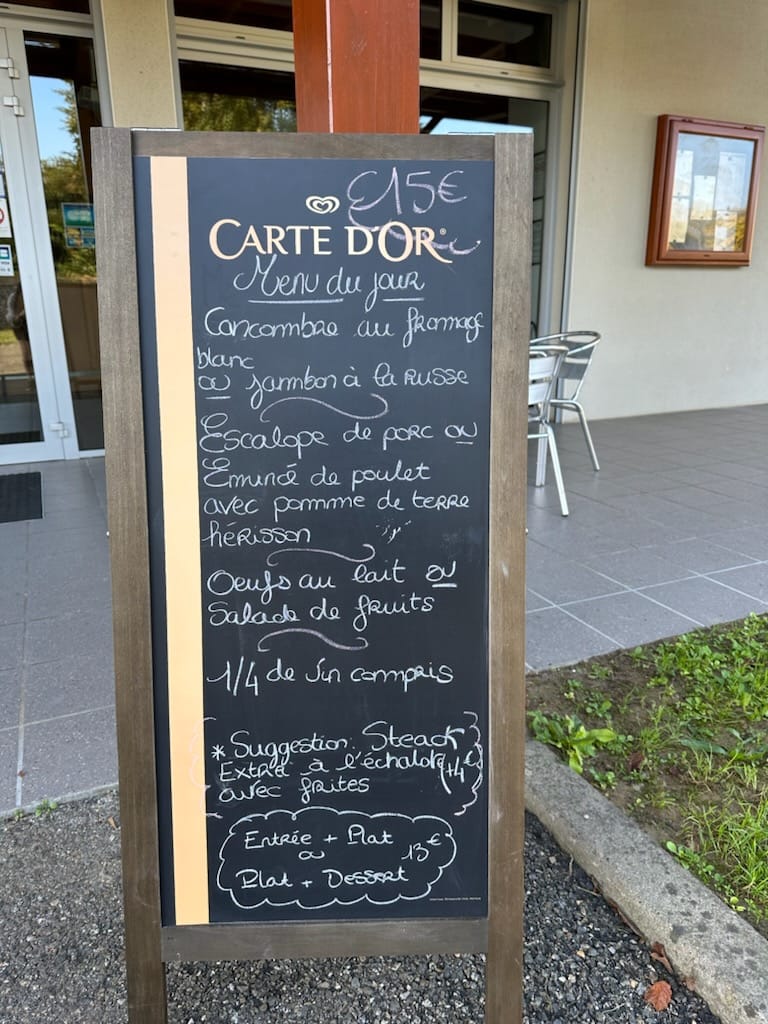 15€
CARTE D'OR®
Menu du jour
Concombre au fromage
blanc
ou jambon à la russe
Escalope de porc ou
Emincé de poulet
avec pomme de terre
hérisson
Oeufs au lait ou
Salade de fruits
1/4 de vin compris
* Suggestion: Steack
Extra à l'échalote (+4€)
avec frites
Entrée + Plat
ou 13€
Plat + Dessert